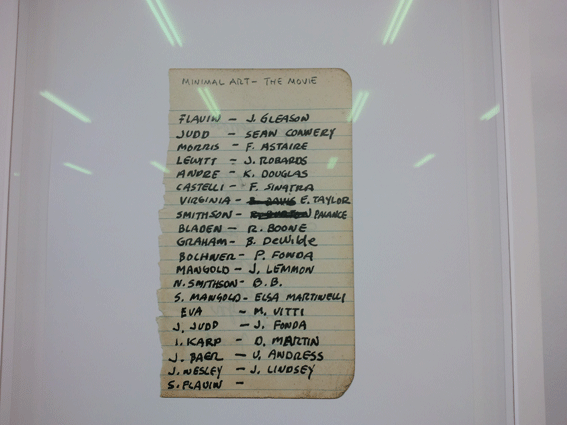 MINIMAL ART - THE MOVIE
FLAVIN - J. GLEASON
JUDD - SEAN CONNERY
MORRIS - F. ASTAIRE
LEWITT - J. ROBARDS
ANDRE - K. DOUGLAS
CASTELLI - F. SINATRA
VIRGINIA - B. DAVIS E. TAYLOR
SMITHSON - R. BURTON PALANCE
BLADEN - R. BOONE
GRAHAM - B. DeWilde
BOCHNER - P. FONDA
MANGOLD - J. LEMMON
N. SMITHSON - B.B.
S. MANGOLD - ELSA MARTINELLI
EVA - M. VITTI
J. JUDD - J. FONDA
I. KARP - D. MARTIN
J. BAER - U. ANDRESS
J. WESLEY - J. LINDSEY
S. FLAVIN -